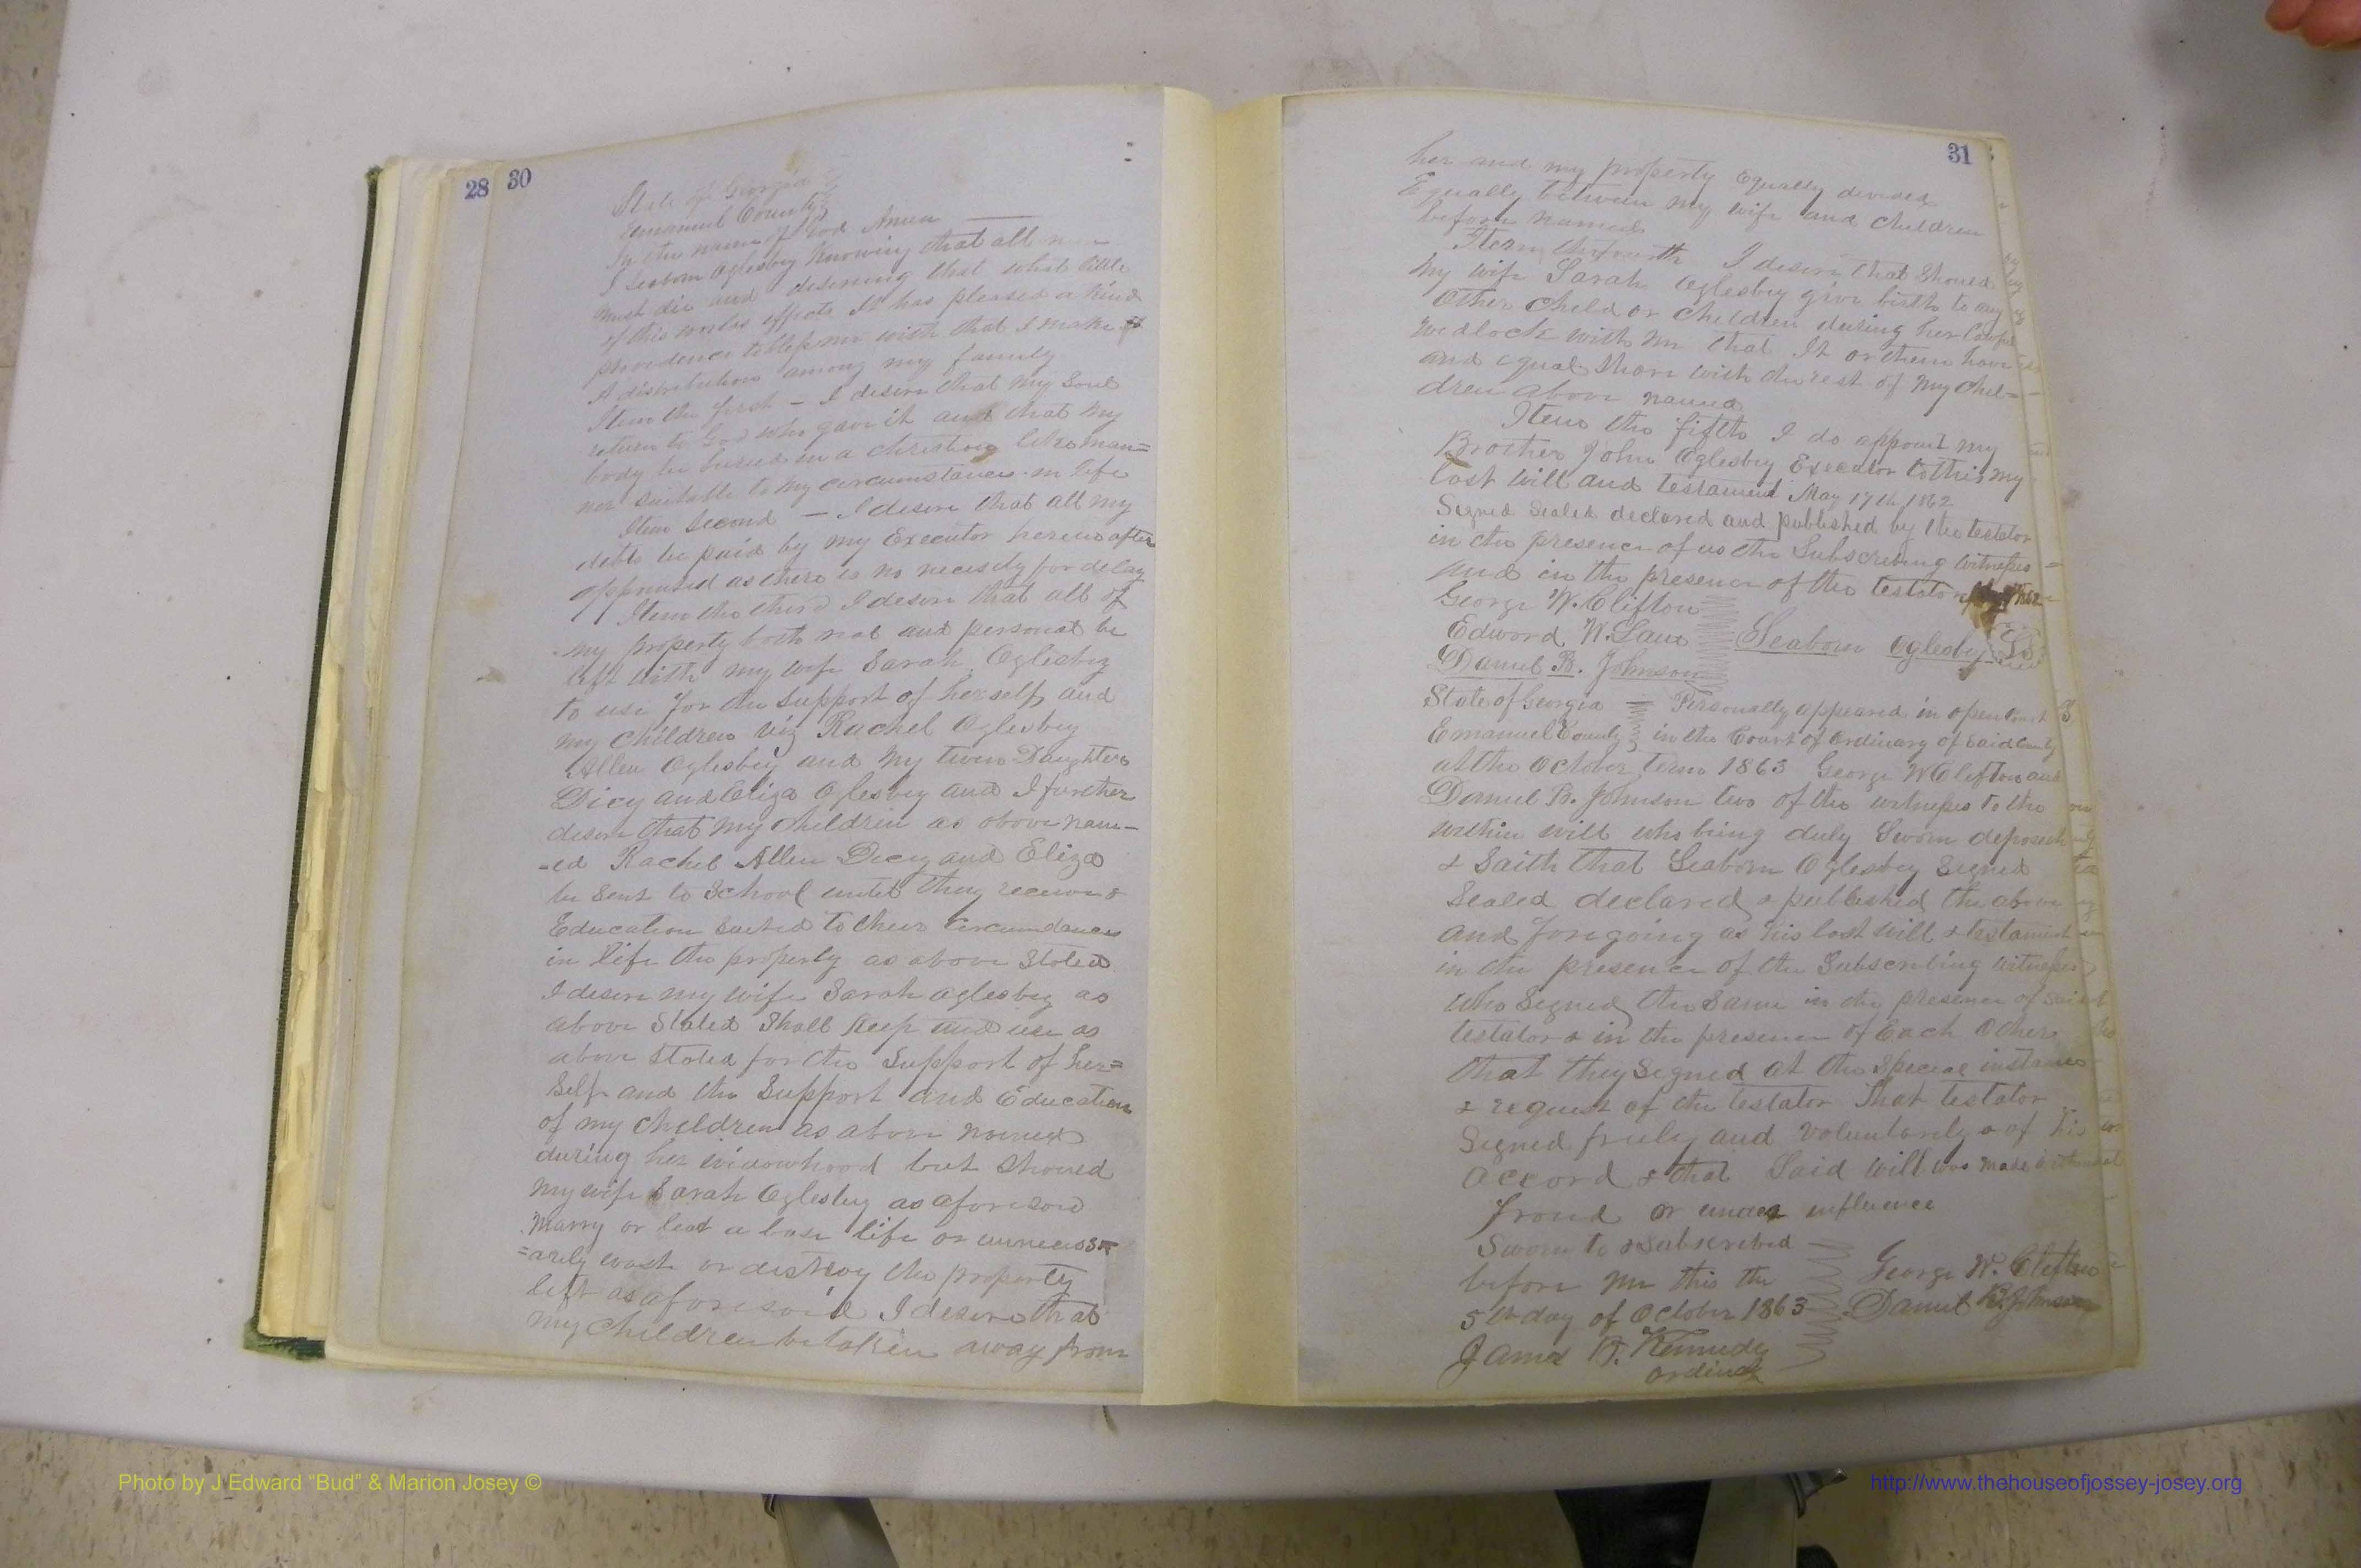 28 30
State of Georgia
Emanuel County
In the name of God Amen
I Seaborn Oglesby Knowing that all men
must die and desireing that what little
of this worlds effects It has pleased a kind
providence to bless me with that I make
A distribution among my family
Item the first - I desire that my Soul
return to God who gave it and that my
body be buried in a christian like man=
ner suitable to my circumstances in life
Item Second - I desire that all my
debts be paid by my Executor hereinafter
appointed as there is no necesity for delay
Item the third I desire that all of
my property both real and personal be
left with my wife Sarah Oglesby
to use for the support of her self and
my children viz Rachel Oglesby
Allen Oglesby and my twin Daughters
Dicy and Eliza Oglesby and I further
desire that my children as above nam-
-ed Rachel Allen Dicy and Eliza
be sent to School until they receive
Education suited to their circumstances
in life the property as above stated
I desire my wife Sarah Oglesby as
above stated Shall keep and use as
above stated for the Support of her=
Self and the Support and Education
of my children as above named
during her widowhood but should
my wife Sarah Oglesby as aforesaid
marry or lead a base life or unnecess
=arily waste or distroy the property
left as aforesaid I desire that
my children be taken away from
31
her and my property Equally devised
Equally between my wife and children
before named
Item the fourth I desire that Should
my wife Sarah Oglesby give birth to any
other child or children during her lawful
wedlock with me that It or them have
and equal Share with the rest of my chil=
dren above named
Item the fifth I do appoint my
Brother John Oglesby Executor to this my
last will and testament May 17th 1862
Signed Sealed declared and published by the testator
in the presence of us the Subscribing witnesses
and in the presence of the testator
George W. Clifton
Edward W. Lane Seaborn Oglesby LS
Daniel B. Johnson
State of Georgia Personally appeared in open Court
Emanuel County in the Court of Ordinary of Said County
at the October term 1863 George W Clifton and
Daniel B. Johnson two of the witnesses to the
within will who being duly Sworn deposeth
& Saith that Seaborn Oglesby Signed
Sealed declared & published the above
and foregoing as his last will & testament
in the presence of the Subscribing witnesses
who Signed the Same in the presence of Said
testator & in the presence of Each Other
that they Signed at the Special instance
& request of the testator That testator
Signed freely and voluntarily & of his
accord & that Said will was made without
fraud or undue influence
Sworn to & Subscribed
before me this the George W. Clifton
5th day of October 1863 Daniel B. Johnson
James B. Kennedy
Photo by J Edward "Bud" & Marion Josey ©
http://www.thehouseofjossey-josey.org